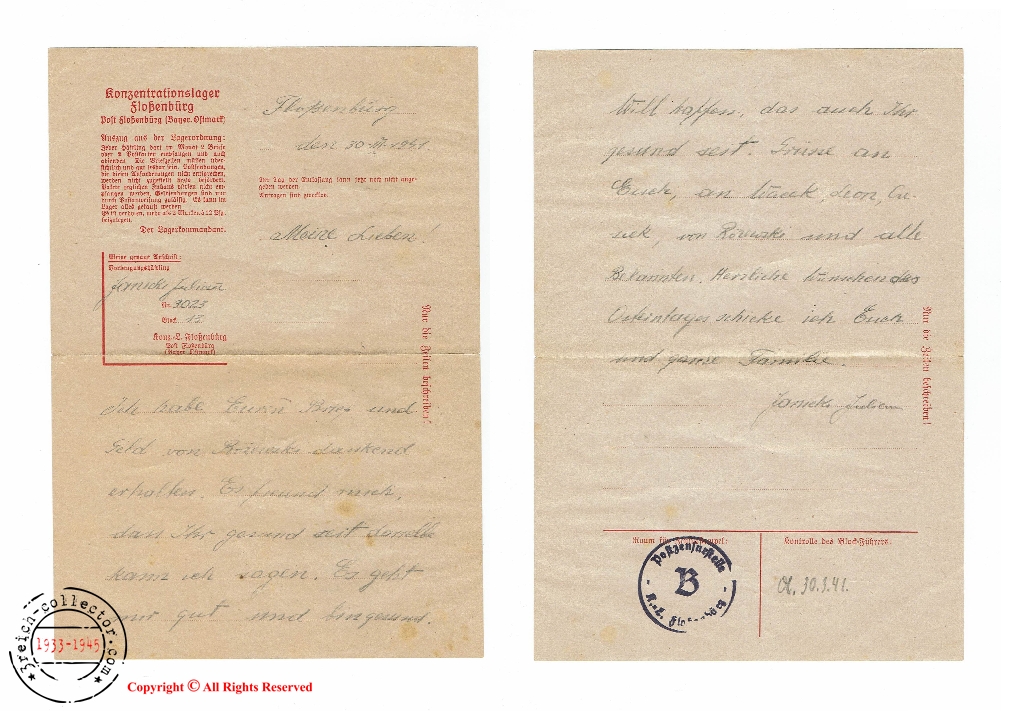 Konzentrationslager
Floßenbürg
Post Floßenbürg (Bayer. Ostmark)
Auszug aus der Lagerordnung:
Jeder Häftling darf im Monat 2 Briefe
oder 2 Postkarten empfangen und auch
absenden. Die Briefzeilen müssen über-
sichtlich und gut lesbar sein. Postsendungen,
die diesen Anforderungen nicht entsprechen,
werden nicht zugestellt bezw. befördert.
Pakete jeglichen Inhalts dürfen nicht em-
pfangen werden. Geldsendungen sind nur
durch Postanweisung zulässig. Es kann im
Lager alles gekauft werden.
Es ist verboten, mehr als 2 Marken à 12 Pfg.
beizulegen.
Der Lagerkommandant.
Floßenbürg
den 30 1941.
Der Tag der Entlassung kann jetzt noch nicht ange-
geben werden
Anfragen sind zwecklos.
Meine Lieben!
Meine genaue Anschrift:
Vorbeugungshäftling
Janicki Julian
Nr. 3025
Block 13
Konz.-L. Floßenbürg
Post Floßenbürg
(Bayer. Ostmark)
Nur die Zeilen beschreiben!
Ich habe und
Geld von dankend
erhalten. Es mich,
das Ihr gesund seit
kann ich sagen. Es geht
mir gut und bin gesund.
Will hoffen, das auch Ihr
gesund seit. Grüse an
Euch, an Leon,
von und alle
Bekannten. Herzliche
schicke ich Euch
und ganze Familie.
Janicki Julian
Nur die Zeilen beschreiben!
Raum für Zensurstempel:
Kontrolle des Blockführers:
Postzensurstelle
B
K.-L. Floßenbürg
30.3.41.
3reich-collector.com
1933-1945
Copyright © All Rights Reserved